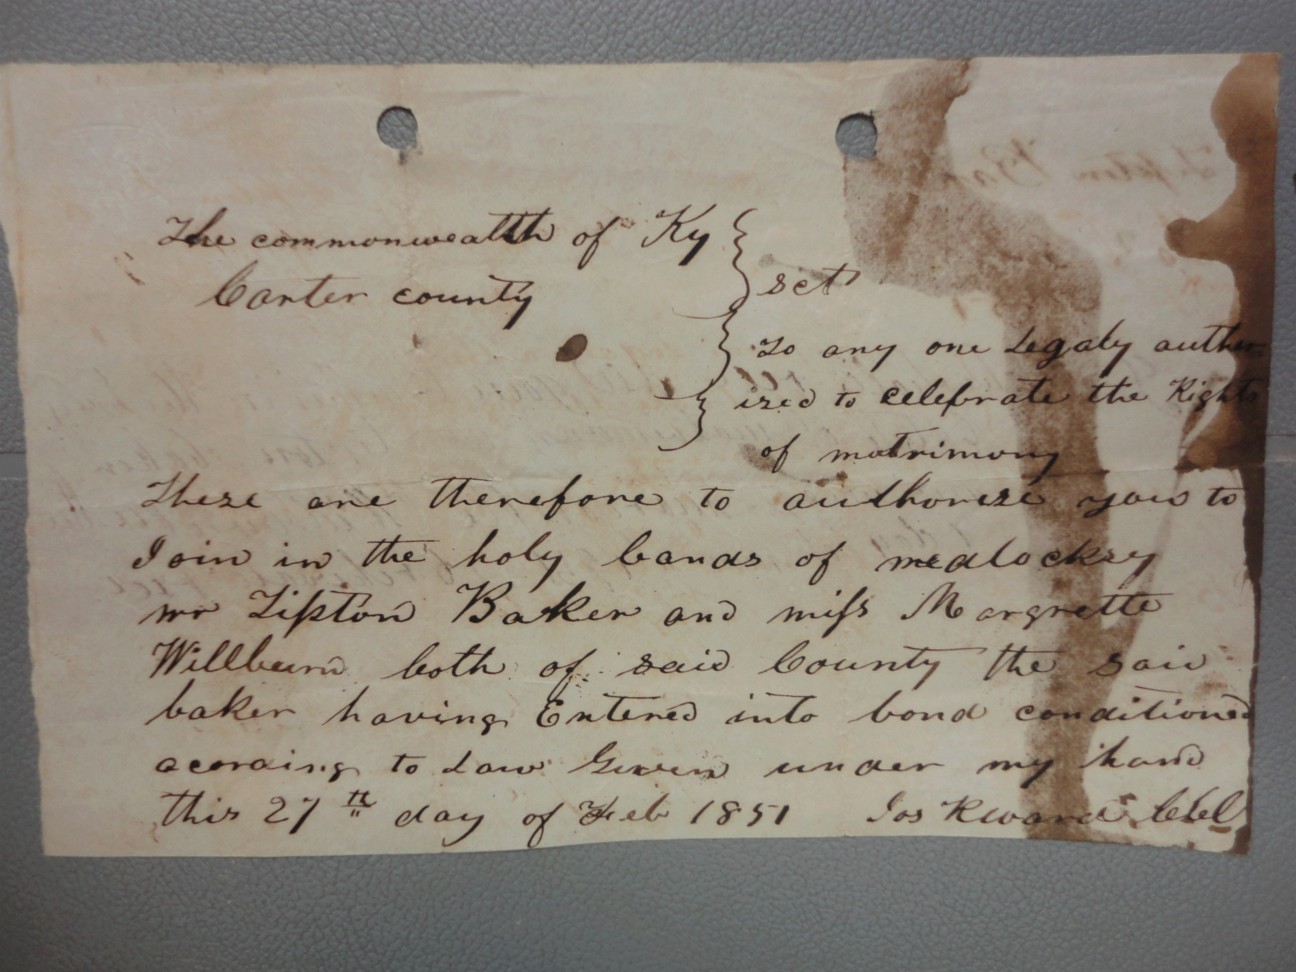 The commonwealth of Ky
Carter county
sct
To any one Legaly author
ized to celebrate the Rights
of matrimony
These are therefore to authorize you to
Join in the holy bands of medlockey
mr Tipton Baker and miss Margrette
Willburn both of said County the said
baker having Entered into bond conditioned
acording to Law Given under my hand
this 27th day of Feb 1851 Jos Rward